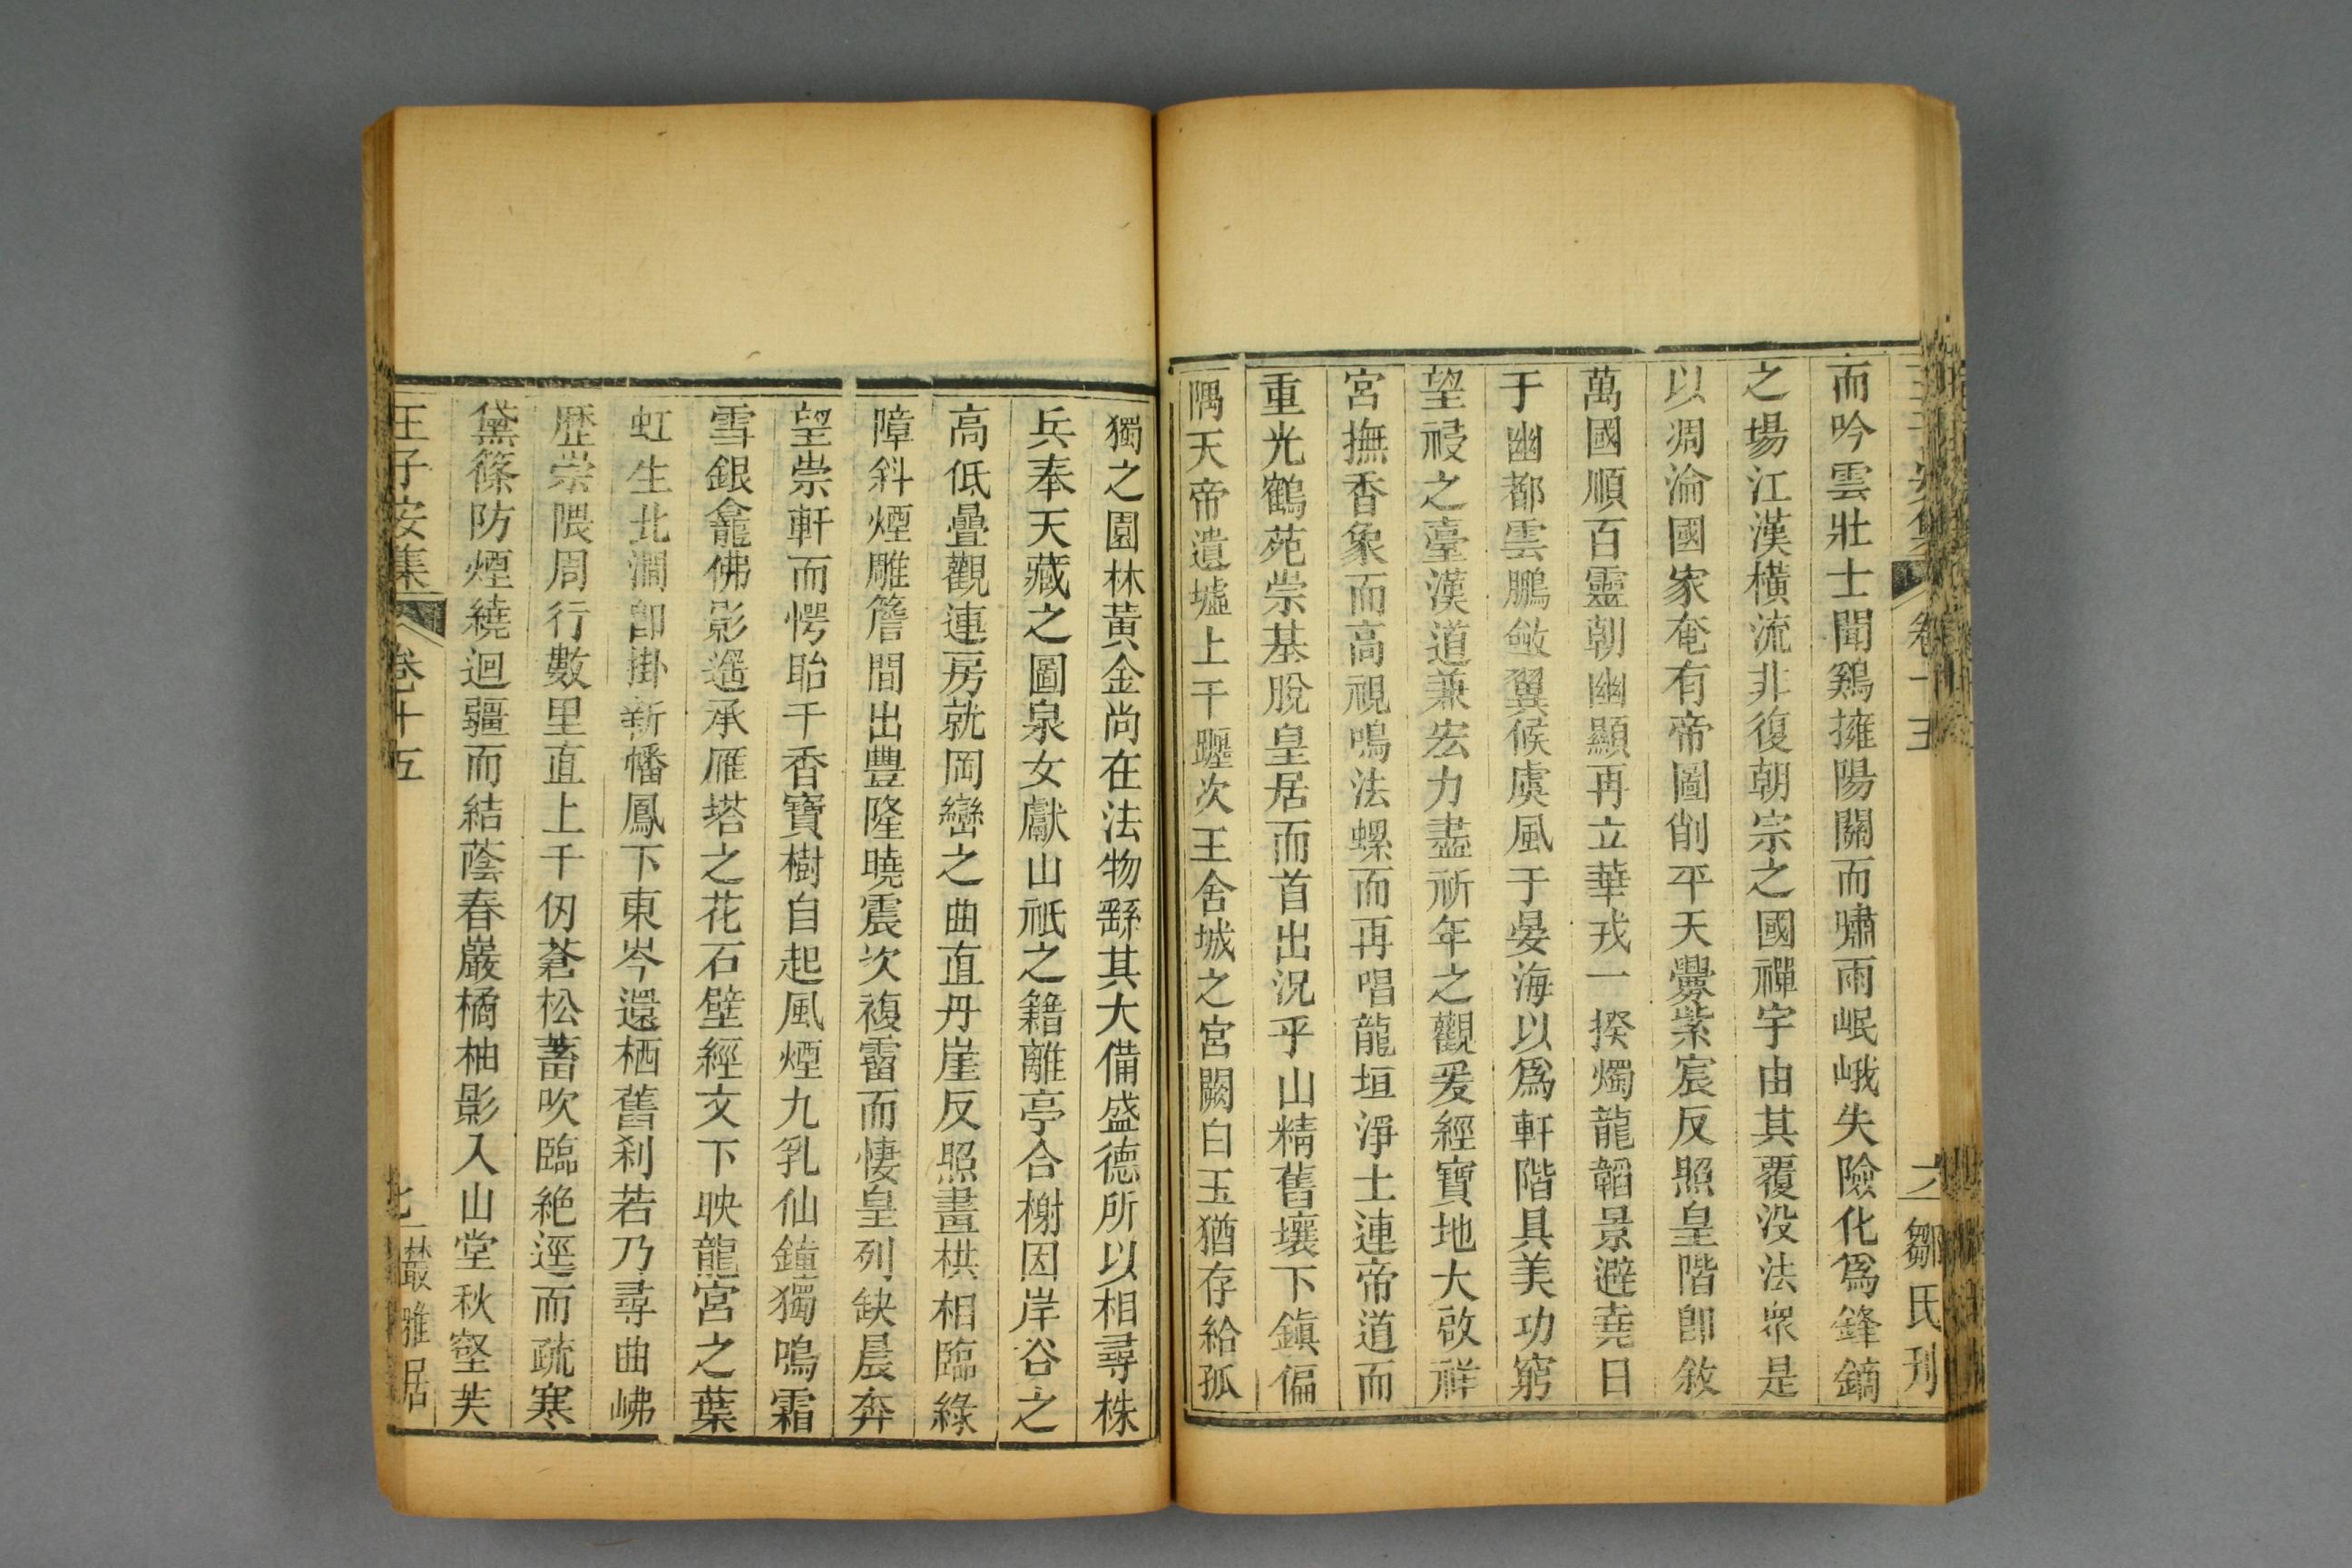 而吟雲壯士聞鷄擁陽關而嘯雨岷峨失險化爲鋒鏑
之場江漢橫流非復朝宗之國禪宇由其覆没法衆是
以凋淪國家奄有帝圖削平天釁紫宸反照皇階卽敘
萬國順百靈朝幽顯再立華戎一揆燭龍韜景避堯日
于幽都雲鵬斂翼候虞風于晏海以爲軒階具美功窮
望祲之臺漢道兼宏力盡祈年之觀爰經寶地大啟祥
宮撫香象而高視鳴法螺而再唱龍垣淨土連帝道而
重光鶴苑崇基脫皇居而首出況乎山精舊壤下鎮偏
隅天帝遺墟上干躔次王舍城之宮闕白玉猶存給孤
獨之園林黃金尚在法物繇其大備盛德所以相尋株
兵奉天藏之圖泉女獻山祇之籍離亭合榭因岸谷之
高低疊觀連房就岡巒之曲直丹崖反照畫栱相臨綠
障斜煙雕簷間出豐隆曉震次複霤而悽皇列缺晨奔
望崇軒而愕眙千香寶樹自起風煙九乳仙鐘獨鳴霜
雪銀龕佛影遥承雁塔之花石壁經文下映龍宮之葉
虹生北澗卽掛新幡鳳下東岑還栖舊刹若乃尋曲岪
歷崇隈周行數里直上千仭蒼松蓄吹臨絶逕而疏寒
黛篠防煙繞迴疆而結蔭春巖橘柚影入山堂秋壑芙
王子安集 卷十五 叢雅居
王子安集 卷十五 鄒氏刊